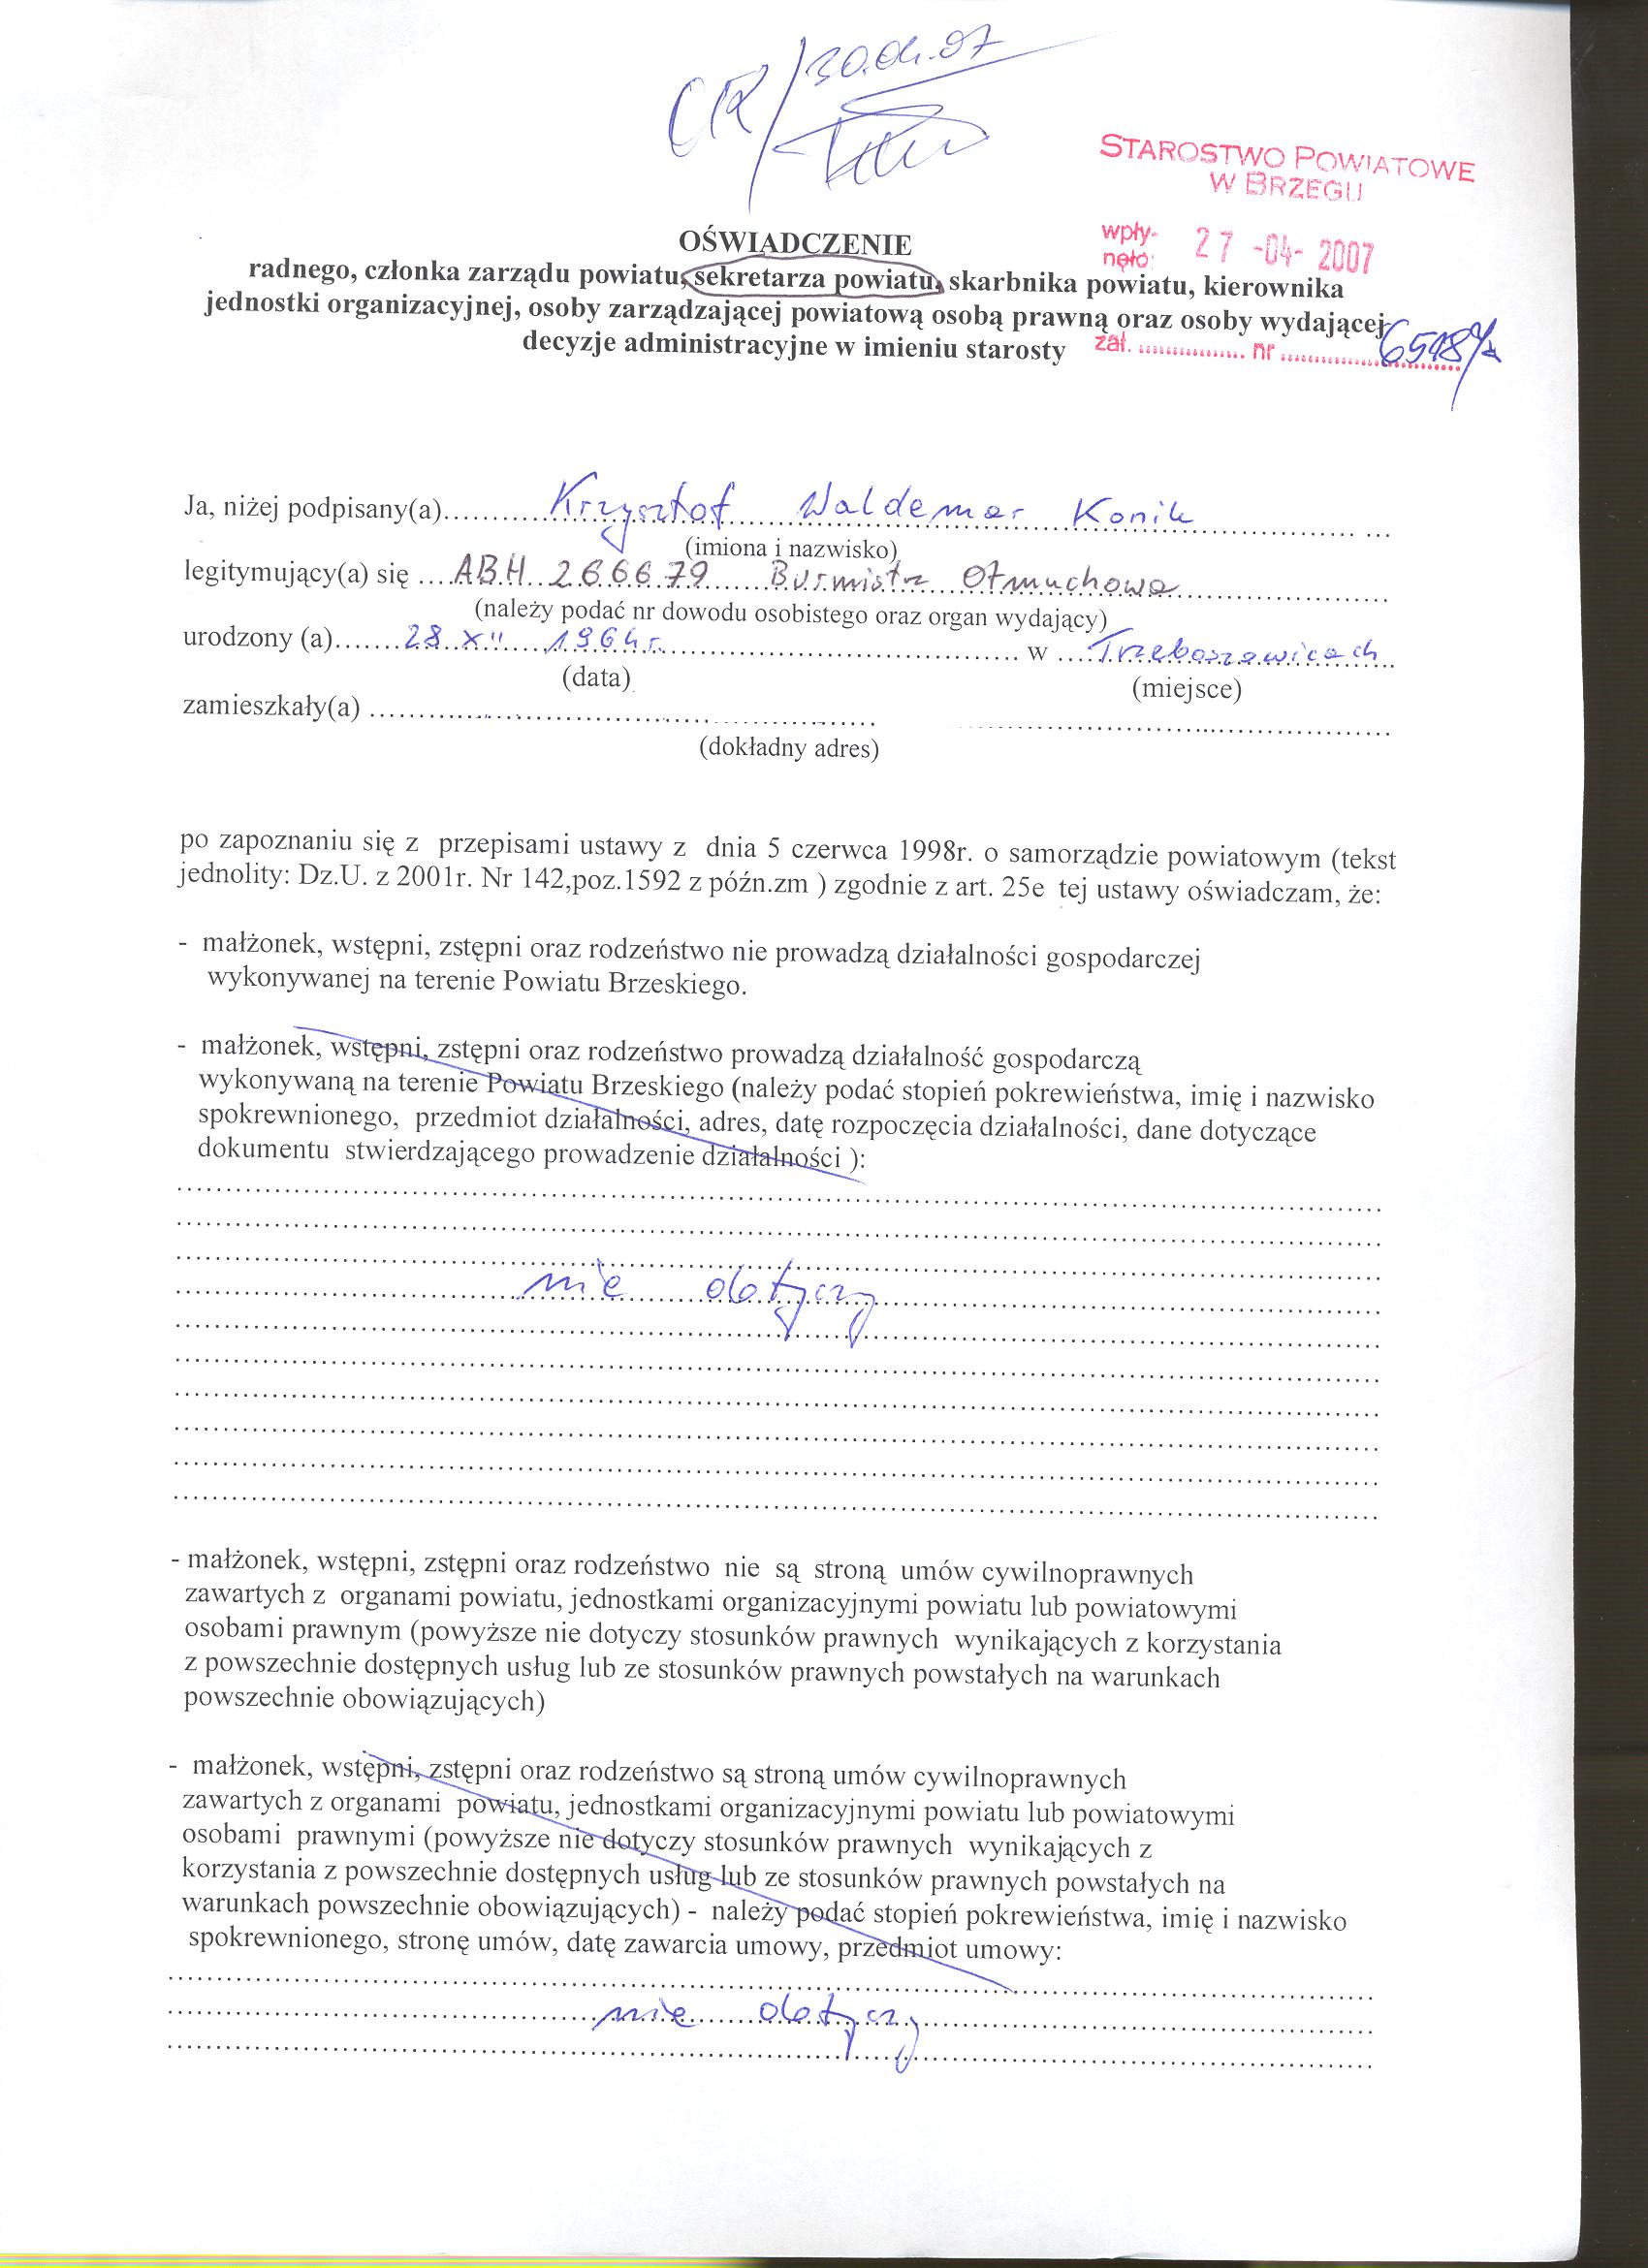 CR/30.04.07
STAROSTWO POWIATOWE
W BRZEGU
wpły-
nęło: 27 -04- 2007
OŚWIADCZENIE
radnego, członka zarządu powiatu, sekretarza powiatu, skarbnika powiatu, kierownika
jednostki organizacyjnej, osoby zarządzającej powiatową osobą prawną oraz osoby wydającej
decyzje administracyjne w imieniu starosty
zał. ................ nr ................
Ja, niżej podpisany(a)..........Krzysztof Waldemar Konik..........
(imiona i nazwisko)
legitymujący(a) się ....ABH 266679 Burmistrz Otmuchowa..........
(należy podać nr dowodu osobistego oraz organ wydający)
urodzony (a).......28 XII 1964 r. .......... w ....Trzeboszowicach..
(data) (miejsce)
zamieszkały(a) ..........
(dokładny adres)
po zapoznaniu się z przepisami ustawy z dnia 5 czerwca 1998r. o samorządzie powiatowym (tekst
jednolity: Dz.U. z 2001r. Nr 142,poz.1592 z późn.zm ) zgodnie z art. 25e tej ustawy oświadczam, że:
- małżonek, wstępni, zstępni oraz rodzeństwo nie prowadzą działalności gospodarczej
wykonywanej na terenie Powiatu Brzeskiego.
- małżonek, wstępni, zstępni oraz rodzeństwo prowadzą działalność gospodarczą
wykonywaną na terenie Powiatu Brzeskiego (należy podać stopień pokrewieństwa, imię i nazwisko
spokrewnionego, przedmiot działalności, adres, datę rozpoczęcia działalności, dane dotyczące
dokumentu stwierdzającego prowadzenie działalności ):
nie dotyczy
- małżonek, wstępni, zstępni oraz rodzeństwo nie są stroną umów cywilnoprawnych
zawartych z organami powiatu, jednostkami organizacyjnymi powiatu lub powiatowymi
osobami prawnym (powyższe nie dotyczy stosunków prawnych wynikających z korzystania
z powszechnie dostępnych usług lub ze stosunków prawnych powstałych na warunkach
powszechnie obowiązujących)
- małżonek, wstępni, zstępni oraz rodzeństwo są stroną umów cywilnoprawnych
zawartych z organami powiatu, jednostkami organizacyjnymi powiatu lub powiatowymi
osobami prawnymi (powyższe nie dotyczy stosunków prawnych wynikających z
korzystania z powszechnie dostępnych usług lub ze stosunków prawnych powstałych na
warunkach powszechnie obowiązujących) - należy podać stopień pokrewieństwa, imię i nazwisko
spokrewnionego, stronę umów, datę zawarcia umowy, przedmiot umowy:
nie dotyczy